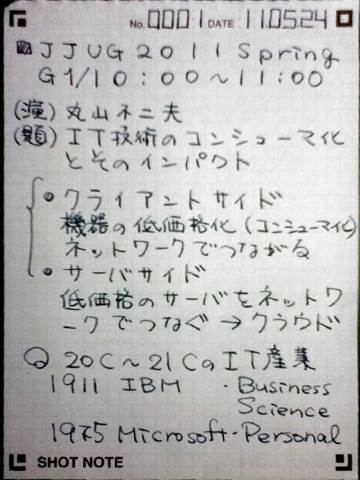 No. 0001 DATE 11.05.24
JJUG 2011 Spring
G1/10:00〜11:00
(演) 丸山不二夫
(題) IT技術のコンシューマ化
とそのインパクト
• クライアントサイド
機器の低価格化(コンシューマ化)
ネットワークでつながる
• サーバサイド
低価格のサーバをネットワ
ークでつなぐ → クラウド
20C〜21CのIT産業
1911 IBM ・Business
Science
1975 Microsoft・Personal
SHOT NOTE